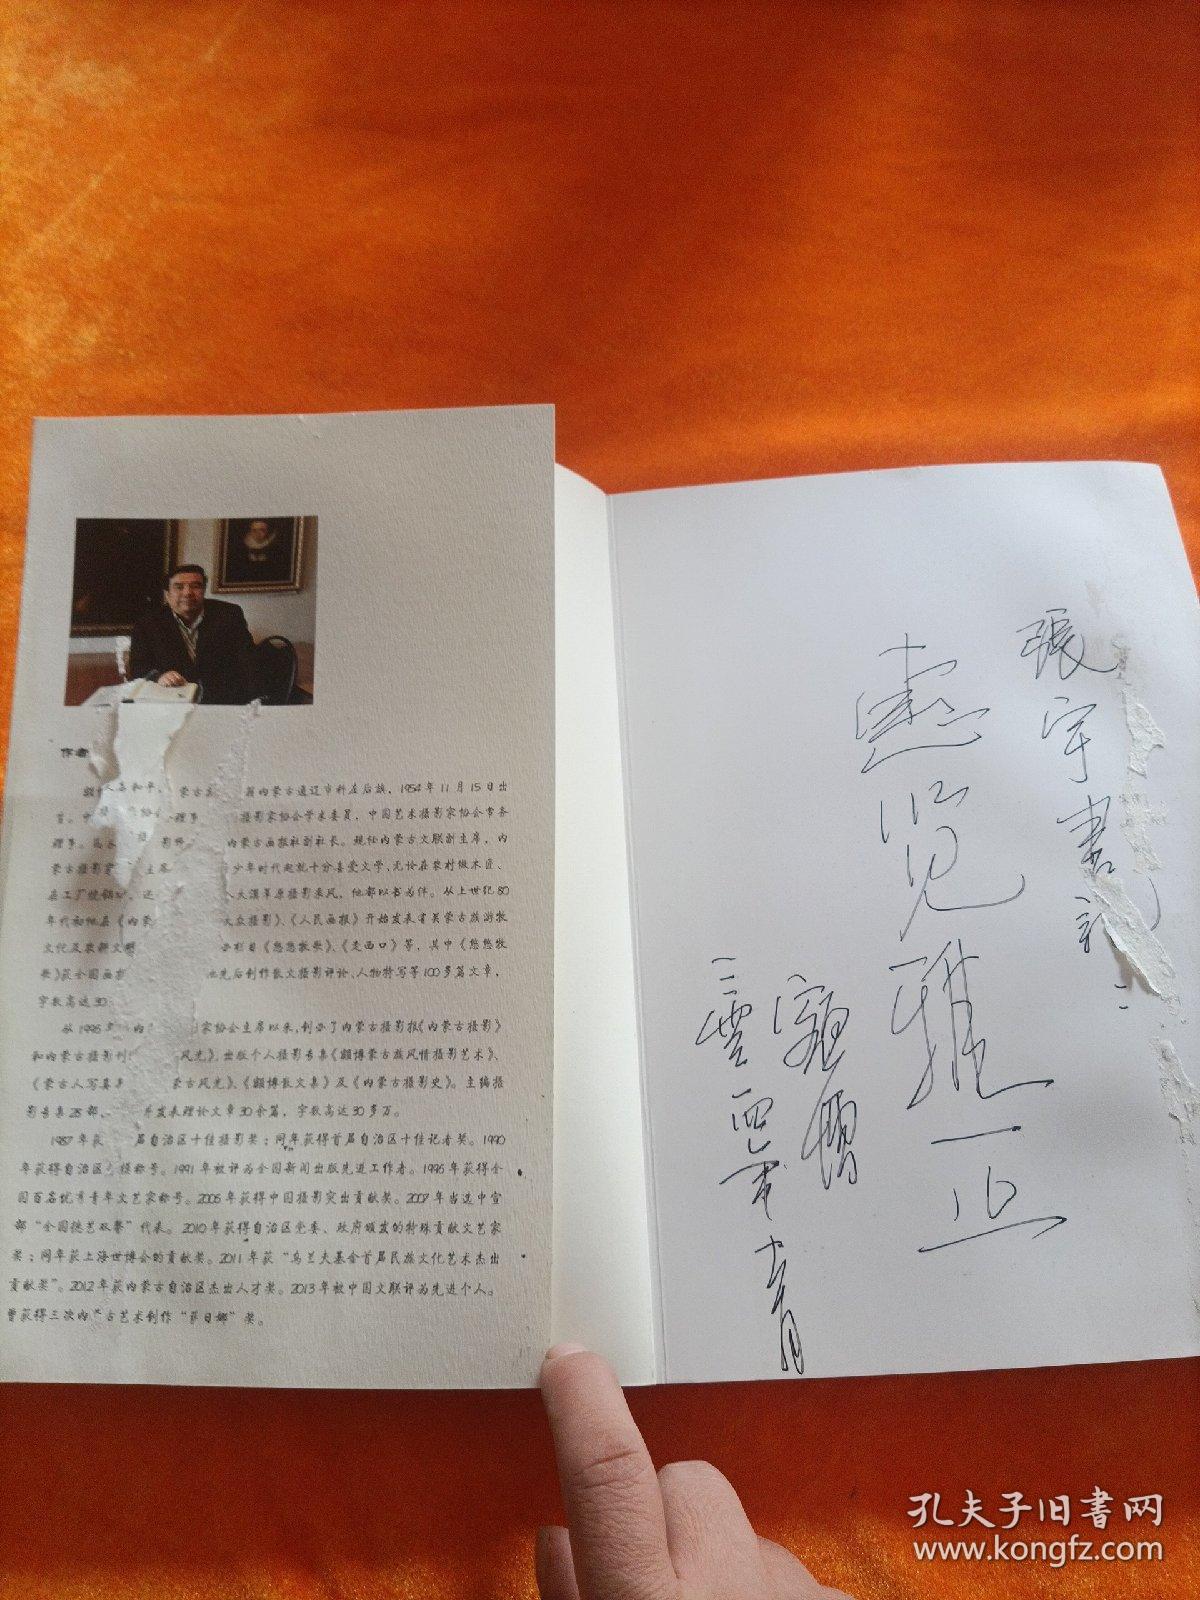 作者
蒙古族
籍内蒙古通辽市科左后旗，1954年11月15日出
理事
摄影家协会学术委员，中国艺术摄影家协会常务
理事。
内蒙古画报社副社长。现任内蒙古文联副主席，内
蒙古摄影家
少年时代起就十分喜爱文学，无论在农村做木匠、
在工厂烧锅炉，还
大漠草原摄影采风，他都以书为伴。从上世纪80
年代初他在《内蒙
大众摄影》、《人民画报》开始发表有关蒙古族游牧
文化及农耕文
栏目《悠悠牧歌》、《走西口》等，其中《悠悠牧
歌》获全国画报
先后创作散文摄影评论、人物特写等100多篇文章，
字数高达30
从1996年
家协会主席以来，创办了内蒙古摄影报《内蒙古摄影》
和内蒙古摄影刊
风光》，出版个人摄影专集《额博蒙古族风情摄影艺术》、
《蒙古人写真集
蒙古风光》、《额博散文集》及《内蒙古摄影史》。主编摄
影专集28部，
并发表理论文章30余篇，字数高达30多万。
1987年获
届自治区十佳摄影奖；同年获得首届自治区十佳记者奖。1990
年获得自治区
模称号。1991年被评为全国新闻出版先进工作者。1996年获得全
国百名优秀青年文艺家称号。2006年获得中国摄影突出贡献奖。2007年当选中宣
部“全国德艺双馨”代表。2010年获得自治区党委、政府颁发的特殊贡献文艺家
奖；同年获上海世博会的贡献奖。2011年获“乌兰夫基金首届民族文化艺术杰出
贡献奖”。2012年获内蒙古自治区杰出人才奖。2013年被中国文联评为先进个人。
曾获得三次内蒙古艺术创作“萨日娜”奖。
張宇書記：
惠览雅正
額博
二零一四年十一月
孔夫子旧书网
www.kongfz.com